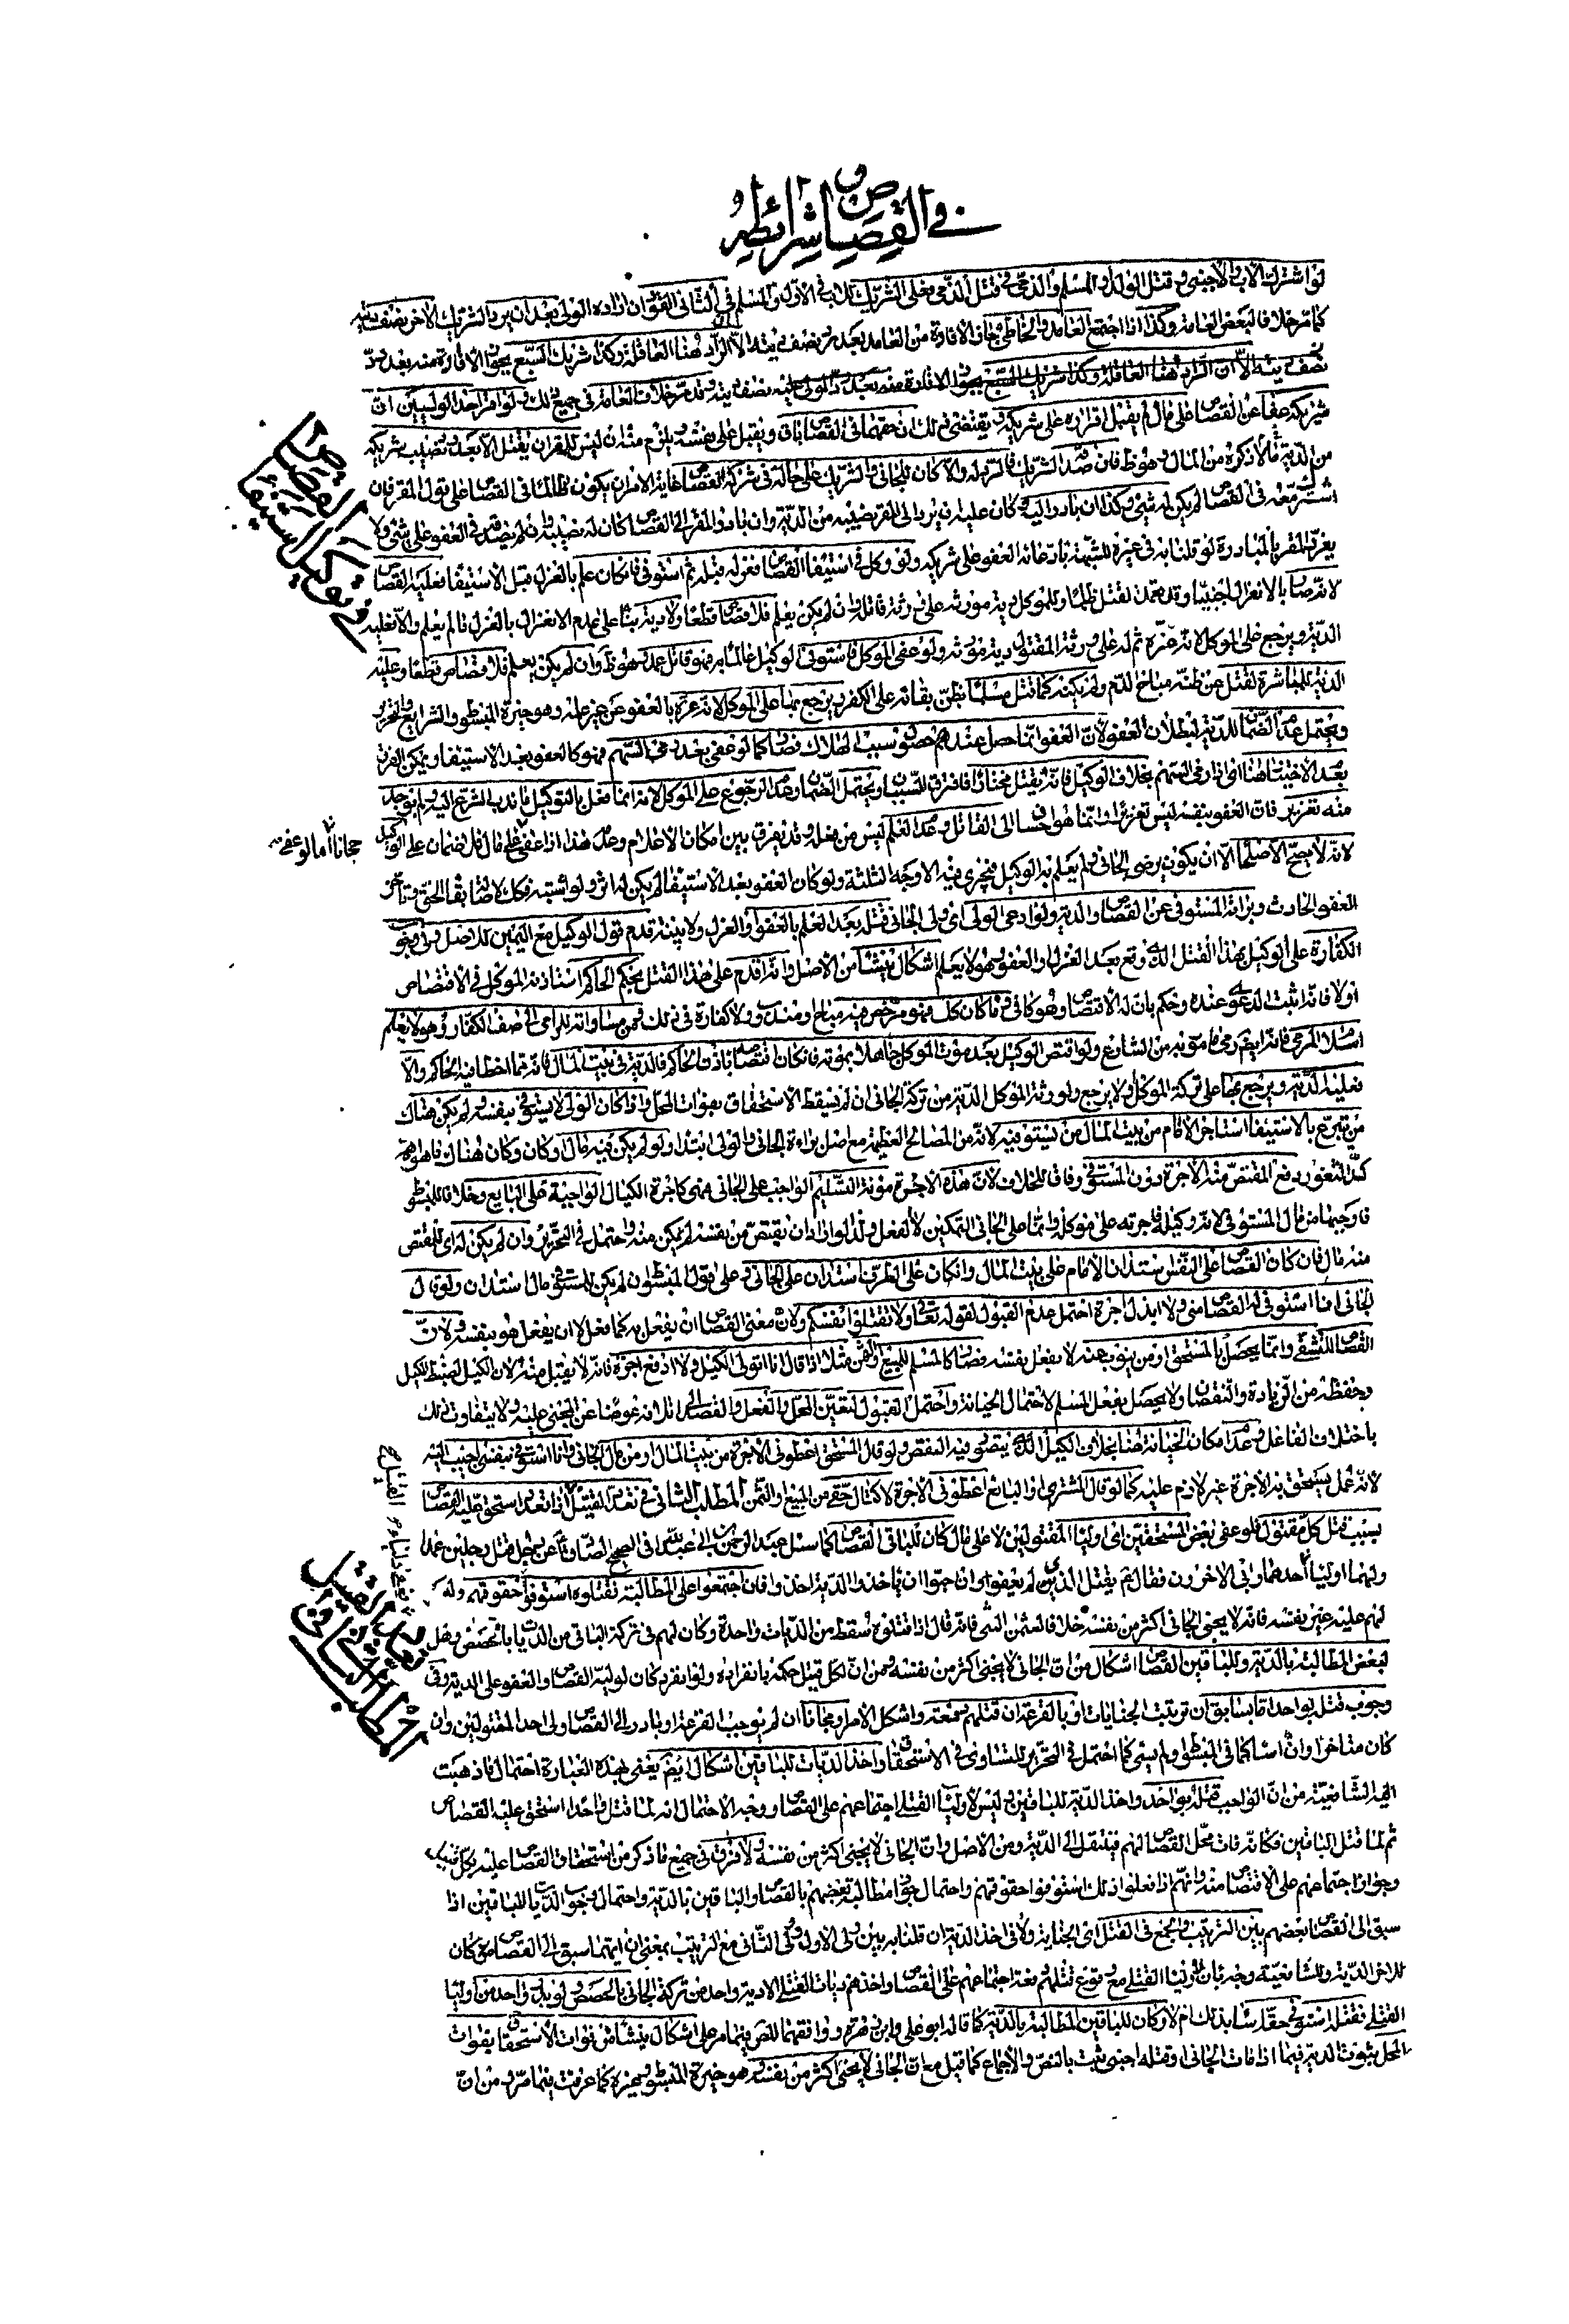 في القصاص وشرائطه
لو اشترك الاب والاجنبي في قتل الولد او المسلم والذمي في قتل الذمي فعلى الشريك للاب في الاول والمسلم في الثاني القود ان اراده الولي بعد ان يرد الشريك الاخر نصف ديته
كما مر خلافا لبعض العامة وكذا اذا اجتمع العامد والخاطئ جاز الاقادة من العامد بعد رد نصف ديته الا ان الراد هنا العاقلة وكذا شريك السبع يجوز الاقادة منه بعد رد
نصف ديته الا ان الراد هنا العاقلة وكذا شريك السبع يجوز الاقادة منه بعد رد الولي عليه نصف ديته وقد مر خلاف العامة في جميع ذلك ولو اقر احد الوليين ان
شريكه عفا عن القصاص على مال لم يقبل اقراره على شريكه ويقتضي ذلك ان حقهما في القصاص باق ويقبل على نفسه ويلزم منه ان ليس للمقر ان يقتل الا بعد رد نصيب شريكه
من الدية فالاذكره من المال وهو ظ فان صدقه الشريك فالرد له والا كان للجاني والشريك على حاله في شركة القصاص غاية الامر ان يكون ظالما في القصاص على قول المقر فان
اشترك معه في القصاص لم يكن له شيء وكذا ان بادر اليه وكان عليه ان يرد الى المقر نصيبه من الدية وان بادر المقر الى القصاص كان له نصيبه وان لم يصدقه في العفو على شيء ولا
يعزر المقر بالمبادرة لو قلنا به في غيره للشبهة بادعائه العفو على شريكه ولو وكل في استيفاء القصاص فعزله قبله ثم استوفى فان كان علم بالعزل قبل الاستيفاء فعليه القصاص
لانه صار بالانعزال اجنبيا وقد تعمد القتل ظلما وللموكل دية مورثه على ورثة قاتله وان لم يكن يعلم فلا قصاص قطعا ولا دية بناء على عدم الانعزال بالعزل ما لم يعلم والا فعليه
الدية ويرجع على الموكل لانه غره ثم له على ورثة المقتول دية مورثه ولو عفى الموكل فاستوفى الوكيل عالما به فهو قاتل عمد وهو ظ وان لم يكن يعلم فلا قصاص قطعا وعليه
الدية للمباشرة لقتل من ظنه مباح الدم ولم يكنه كما قتل مسلما بظن بقائه على الكفر ويرجع بها على الموكل لانه غره بالعفو عن غير علمه وهو خيرة المبسوط والشرايع والتحرير
ويحتمل عدم الضمان للدية لبطلان العفو لان العفو انما حصل عند حصول سبب الهلاك فصار كما لو عفى بعد رمي السهم فهو كالعفو بعد الاستيفاء ويمكن الفرق
بعدم الاختيار هنا اي اذا رمى السهم بخلاف الوكيل فانه يقتل مختارا فافترق السببان ويحتمل الضمان وعدم الرجوع على الموكل لانه انما فعل بالتوكيل ما ندب الشرع اليه ولم يوجد
منه تغرير فان العفو بنفسه ليس تغريرا وانما هو احسان الى القاتل وعدم العلم ليس من فعله وقد يفرق بين امكان الاعلام وعدمه هذا اذا عفى على مال فلا ضمان على الوكيل
مجانا اما لو عفى
لانه لا يصح الاصلحا الا ان يكون برضى الجاني ولم يعلم به الوكيل فيجري فيه الاوجه الثلثة ولو كان العفو بعد الاستيفاء لم يكن له اثر ولو اشتبه فكك لاصالة بقاء الحق وتاخر
العفو الحادث وبراءة المستوفي عن القصاص والدية ولو ادعى الولي اي ولي الجاني قتله بعد العلم بالعفو او العزل ولا بينة قدم قول الوكيل مع اليمين للاصل وفي وجوب
الكفارة على الوكيل بهذا القتل الذي وقع بعد العزل او العفو وهو لا يعلم اشكال ينشأ من الاصل وانه اقدم على هذا القتل بحكم الحاكم استاذنه الموكل في الاقتصاص
او لا فانه اثبت الدعوى عنده وحكم بان له الاقتصاص وهو كاف فما كان كل فهو مرخص فيه مباح او مندوب ولا كفارة في ذلك ومن مساواته للرامي الى صف الكفار وهو لا يعلم
اسلام المرمي فانه ايضا رمى ماموريه من الشارع ولو اقتص الوكيل بعد موت الموكل جاهلا بموته فان كان اقتصاصا باذن الحاكم فالدية في بيت المال فانه مما اخطا فيه الحاكم والا
فعليه الدية ويرجع بها على تركة الموكل او لا يرجع ولورثة الموكل الدية من تركة الجاني ان لم نسقط الاستحقاق بفوات المحل واذا كان الولي لا يستوفي بنفسه ولم يكن هناك
من يتبرع بالاستيفاء استاجر الامام من بيت المال من يستوفيه لانه من المصالح العظيمة مع اصل براءة الجاني والولي ابتداء ولو لم يكن فيه مال او كان وكان هناك ما هو اهم
كسد الثغور دفع المقتص منه الاجرة دون المستوفي وفاقا للخلاف لان هذه الاجرة مؤنة التسليم الواجب على الجاني فهي كاجرة الكيال الواجبة على البايع وخلافا للمبسوط
فاوجبها من مال المستوفي لانه وكيله فاجرته على موكله وانما على الجاني التمكين لا الفعل ولذا لو اراد ان يقتص من نفسه لم يمكن منه واحتمل في التحرير وان لم يكن له اي للمقتص
منه مال فان كان القصاص على النفس استدان الامام على بيت المال وان كان على الطرف استدان على الجاني وعلى قول المبسوط ان لم يكن للمستوفي مال استدان ولو قال
الجاني انا استوفي له القصاص مني ولا ابذل اجرة احتمل عدم القبول لقوله تعالى ولا تقتلوا انفسكم ولان معنى القصاص ان يفعل به كما فعل لا ان يفعل هو بنفسه ولان
القصاص للتشفي وانما يحصل بالمستحق او من ينوب عنه لا بفعل نفسه فصار كالمسلم للمبيع والثمن مثلا اذا قال انا اتولى الكيل ولا ادفع اجرة فانه لا يقبل منه لان الكيل لضبط المكيل
وحفظه من الزيادة والنقصان ولا يحصل بفعل المسلم لاحتمال الخيانة واحتمل القبول لتعين المحل والفعل والقصاص لانه عوضا عن المجني عليه ولا يتفاوت ذلك
باختلاف الفاعل وعدم امكان الخيانة هنا بخلاف الكيل الذي يتصور فيه النقص ولو قال المستحق اعطوني الاجرة من بيت المال او من مال الجاني وانا استوفي بنفسي اجيب اليه
لانه عمل يستحق به الاجرة غير لازم عليه كما لو قال المشتري او البائع اعطوني الاجرة لاكتال حقي من المبيع او الثمن المطلب الثاني في تعدد القتيل اذا تعدد استحق عليه القصاص
بسبب قتل كل مقتول فلو عفى بعض المستحقين اي اولياء المقتولين لا على مال كان للباقي القصاص كما سئل عبد الرحمن ابا عبد الله في الصحيح الصادق عن رجل قتل رجلين عمدا
ولهما اولياء فعفى اولياء احدهما وابى الاخرون فقال يقتل الذين لم يعفوا وان احبوا ان ياخذوا الدية اخذوا فان اجتمعوا على المطالبة فقتلوه استوفوا حقوقهم وليس
لهم عليه غير نفسه فانه لا يجني الجاني اكثر من نفسه خلافا لعثمن البتي فانه قال اذا قتلوه سقط من الديات واحدة وكان لهم في تركته الباقي من الديات بالحصص وهل
لبعض المطالبة بالدية وللباقين القصاص اشكال من ان الجاني لا يجني اكثر من نفسه ومن ان لكل قتيل حكمه بانفراده ولو انفرد كان لوليه القصاص والعفو على الدية وفي
وجوب قتله بواحد اما بسابق ان ترتبت الجنايات او بالقرعة ان قتلهم دفعة واشكل الامر او مجانا ان لم نوجب القرعة او بادر الى القصاص ولي احد المقتولين وان
كان متاخرا وان اساء كما في المبسوط او لم يسئ كما احتمل في التحرير للتساوي في الاستحقاق واخذ الديات للباقين اشكال ايضا يعني بهذه العبارة احتمال ما ذهبت
اليه الشافعية من ان الواجب قتله بواحد واخذ الدية للباقين وليس لاولياء القتلى اجتماعهم على القصاص ووجه الاحتمال انه لما قتل واحدا استحق عليه القصاص
ثم لما قتل الباقين فكانه فات محل القصاص لهم فينتقل الى الدية ومن الاصل وان الجاني لا يجني اكثر من نفسه ولا فرق في جميع ما ذكر من استحقاق القصاص عليه بكل قتيل
وجواز اجتماعهم على الاقتصاص منه وانهم اذا فعلوا ذلك استوفوا حقوقهم واحتمال جواز مطالبة بعضهم بالقصاص والباقين بالدية واحتمال وجوب الديات للباقين اذا
سبق الى القصاص بعضهم بين الترتيب والجمع في القتل اي الجناية ولا في اخذ الدية ان قلنا به بين ولي الاول وولي الثاني مع الترتيب بمعنى ان ايهما سبق الى القصاص كان
للاخر الدية وللشافعية وجه بان لاولياء القتلى مع وقوع قتلهم دفعة اجتماعهم على القصاص واخذهم ديات القتلى الا دية واحد من تركة الجاني بالحصص ولو بدر واحد من اولياء
القتلى فقتله استوفى حقه اساء بذلك ام لا وكان للباقين المطالبة بالدية كما قاله ابو علي وابن زهرة ووافقهما المص فيما مر على اشكال ينشأ من فوات الاستحقاق بفوات
المحل وثبوت الدية فيما اذا مات الجاني او قتله اجنبي ثبت بالنص والاجماع كما قيل مع ان الجاني لا يجني اكثر من نفسه وهو خيرة المبسوط وغيره كما عرفت فيما مر ومن ان